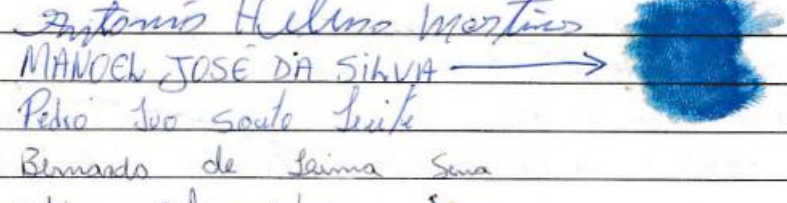 Antonio Helino Martins
MANOEL JOSÉ DA SILVA
Pedro Ivo Souto Leite
Bernardo de Lima Sena